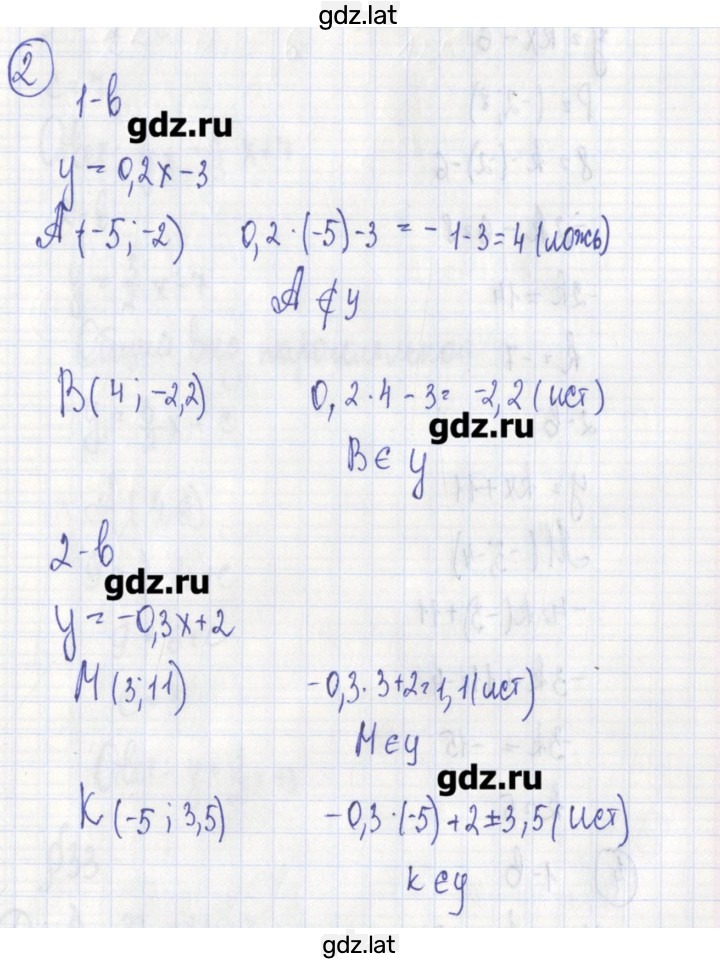 gdz.lat
2
1-в
gdz.ru
y = 0,2x - 3
A (-5; -2) 0,2 · (-5) - 3 = - 1 - 3 = 4 (ложь)
A ∉ y
B (4; -2,2) 0,2 · 4 - 3 = -2,2 (ист)
gdz.ru
B ∈ y
2-в
gdz.ru
y = -0,3x + 2
M (3; 11) -0,3 · 3 + 2 = 1,1 (ист)
M ∈ y
gdz.ru
K (-5; 3,5) -0,3 · (-5) + 2 = 3,5 (ист)
K ∈ y
gdz.lat